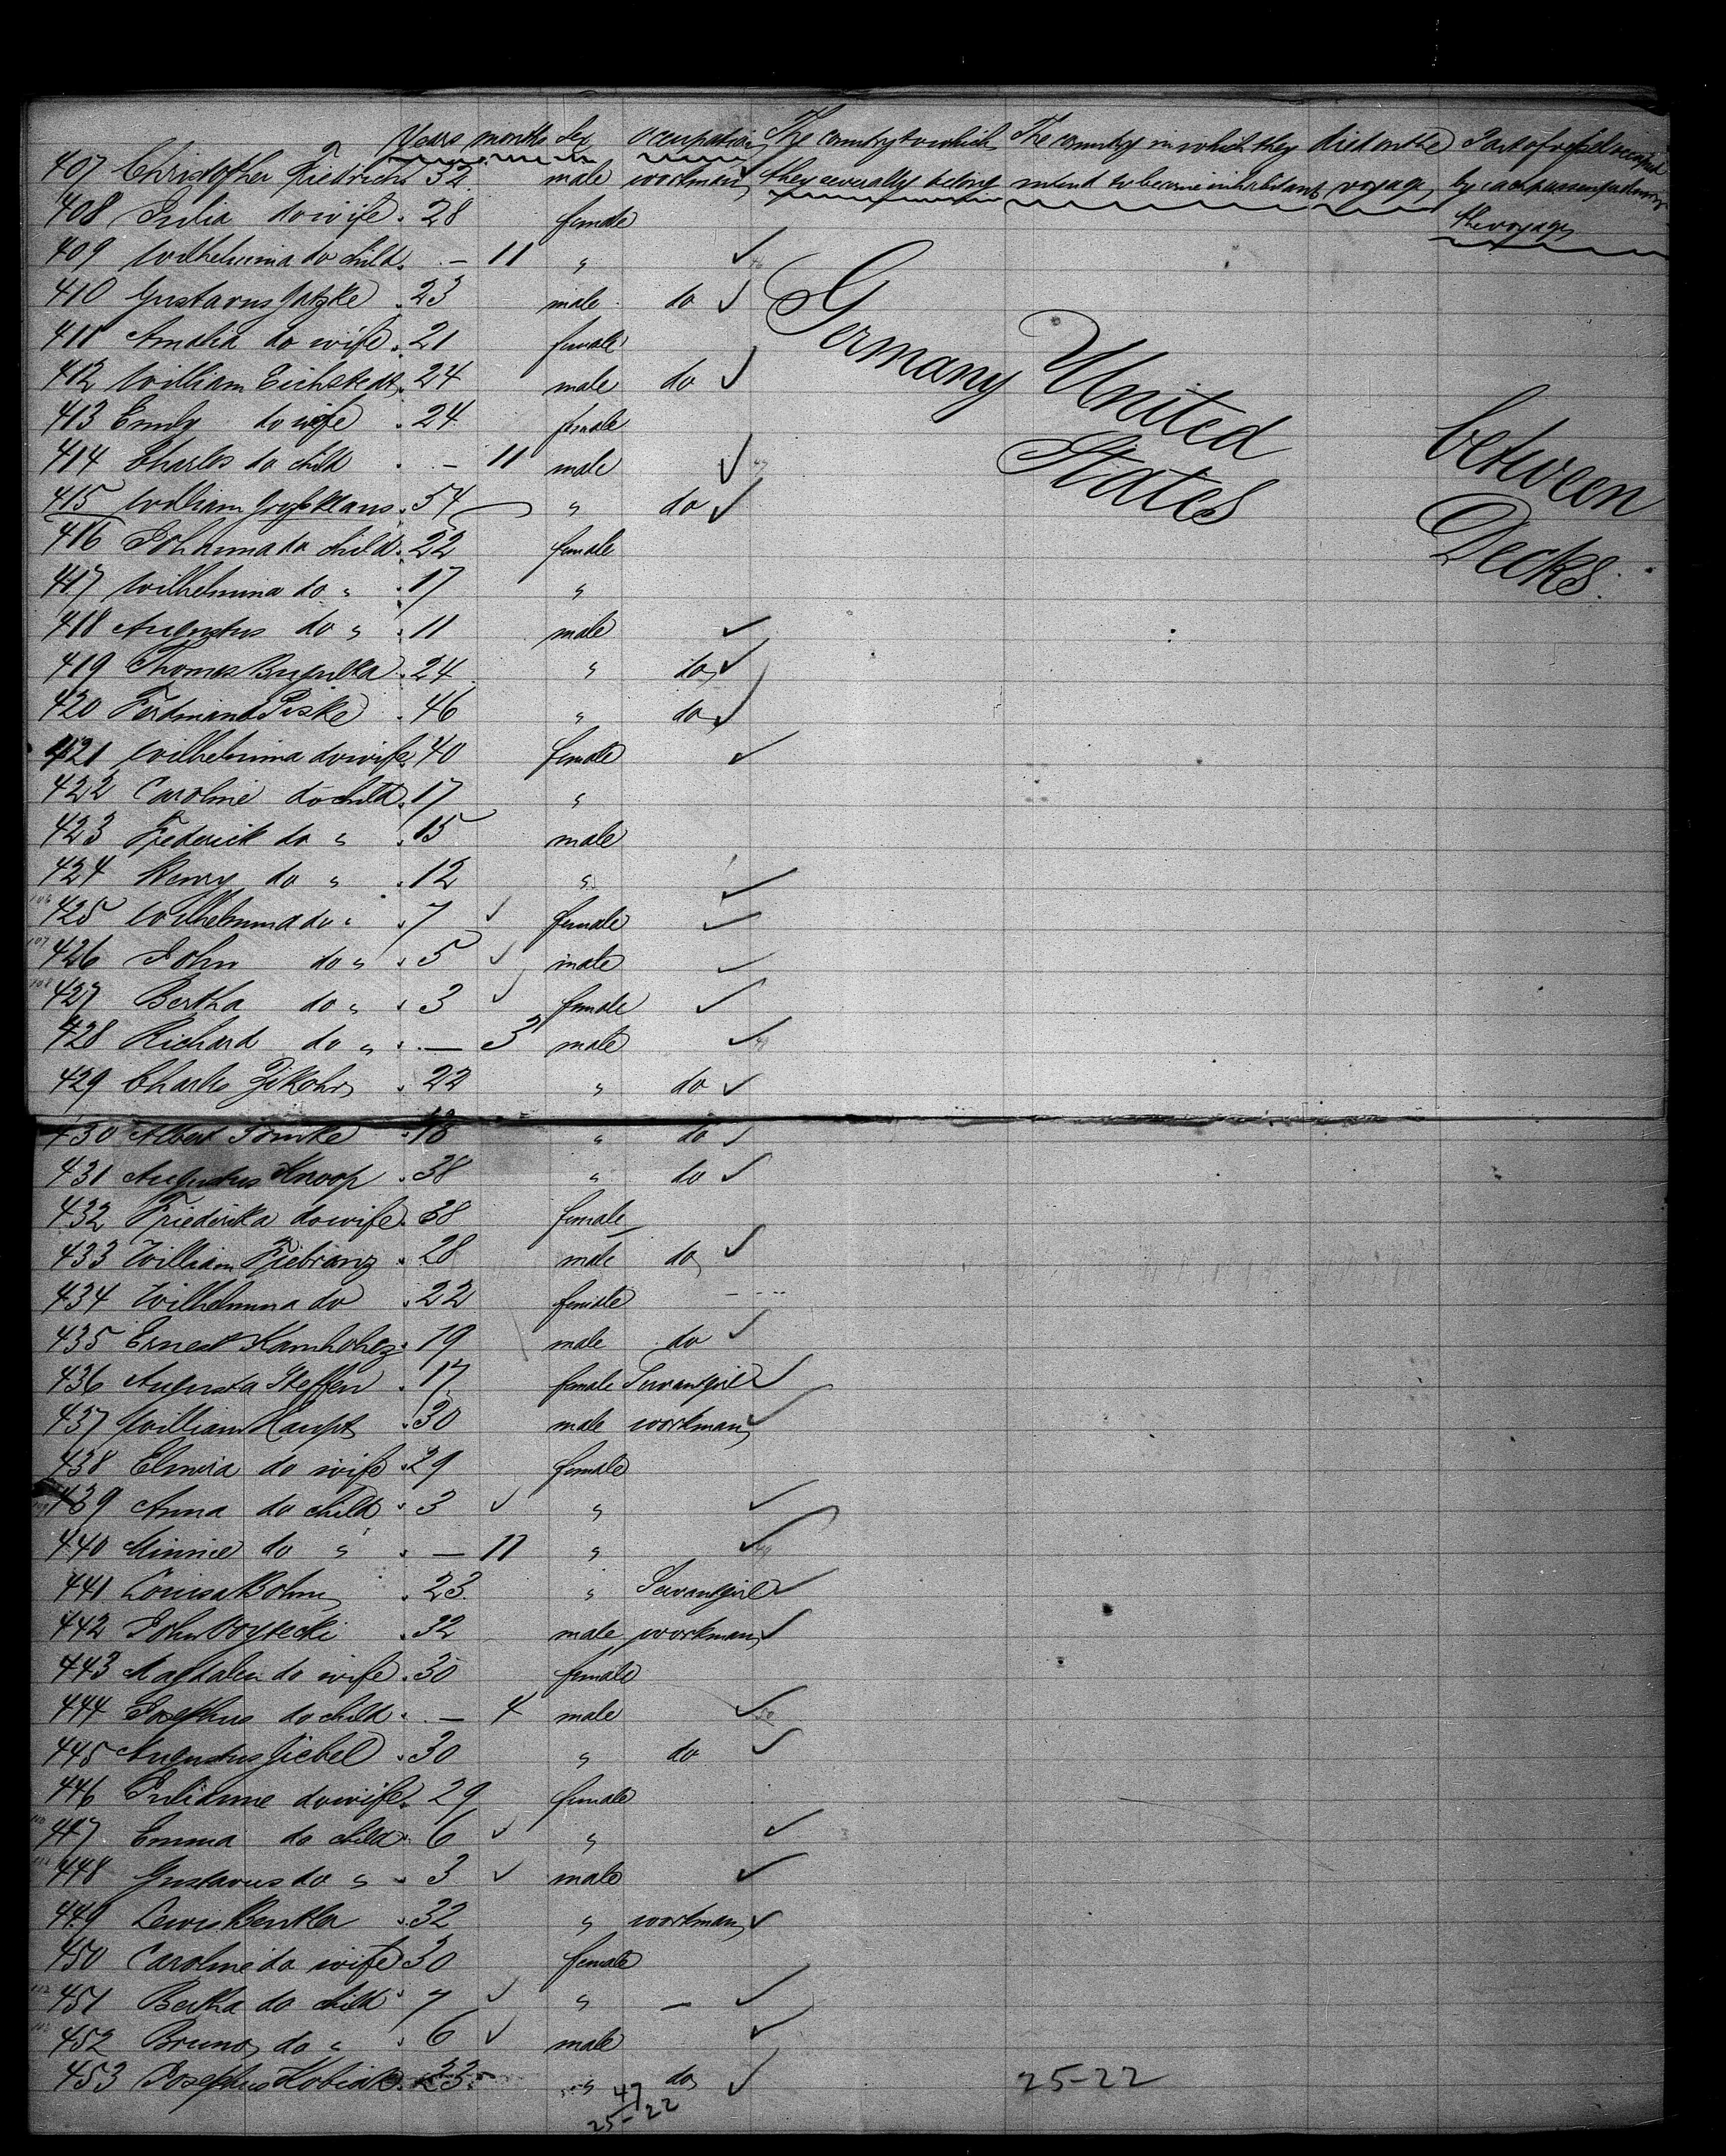 Years months Sex occupation The country to which The country in which they died on the Part of vessel occupied
407 Christopher Friedrich 32 male workman they severally belong intend to become inhabitants voyage by each passenger during
408 Julia do wife 28 female the voyage
409 Wilhelmina do child — 11 "
410 Gustavus Jatzke 23 male do
Germany
411 Amalia do wife 21 female
United
412 William Eichstedt 24 male do
413 Emily do wife 24 female
between
414 Charles do child — 11 male
States
415 William 54 " do
416 Johanna do child 22 female
Decks.
417 Wilhelmina do " 17 "
418 Augustus do " 11 male
419 Thomas 24 " do
420 Ferdinand Piske 46 " do
421 Wilhelmina do wife 40 female
422 Caroline do child 17 "
423 Frederick do " 15 male
424 Henry do " 12 "
425 Wilhelmina do " 7 female
426 John do " 5 male
427 Bertha do " 3 female
428 Richard do " — 3 male
429 Charles 22 " do
430 Albert 18 " do
431 Augustus Knoop 38 " do
432 Friederika do wife 38 female
433 William Fiebranz 28 male do
434 Wilhelmina do 22 female
435 Ernest Kamholz 19 male do
436 Augusta Steffen 17 female Servantgirl
437 William Haupt 30 male workman
438 Elmira do wife 29 female
439 Anna do child 3 "
440 Minnie do " — 11 "
441 Louisa Bohm 23 " Servantgirl
442 John Voytecki 32 male workman
443 Magdalen do wife 30 female
444 Josephus do child — 4 male
445 Augustus Giebel 30 " do
446 Julianne do wife 29 female
447 Emma do child 6 "
448 Gustavus do " 3 male
449 Lewis Bentler 32 " workman
450 Caroline do wife 30 female
451 Bertha do child 7 " —
452 Bruno do " 6 male
453 Josephus Kobiak 23 " do 25-22
47
25-22